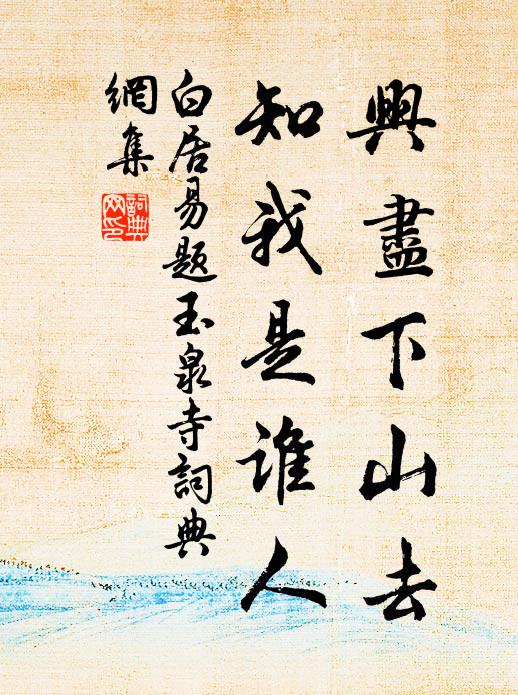 興盡下山去
知我是誰人
白居易題玉泉寺詞典
網集
詞典网印